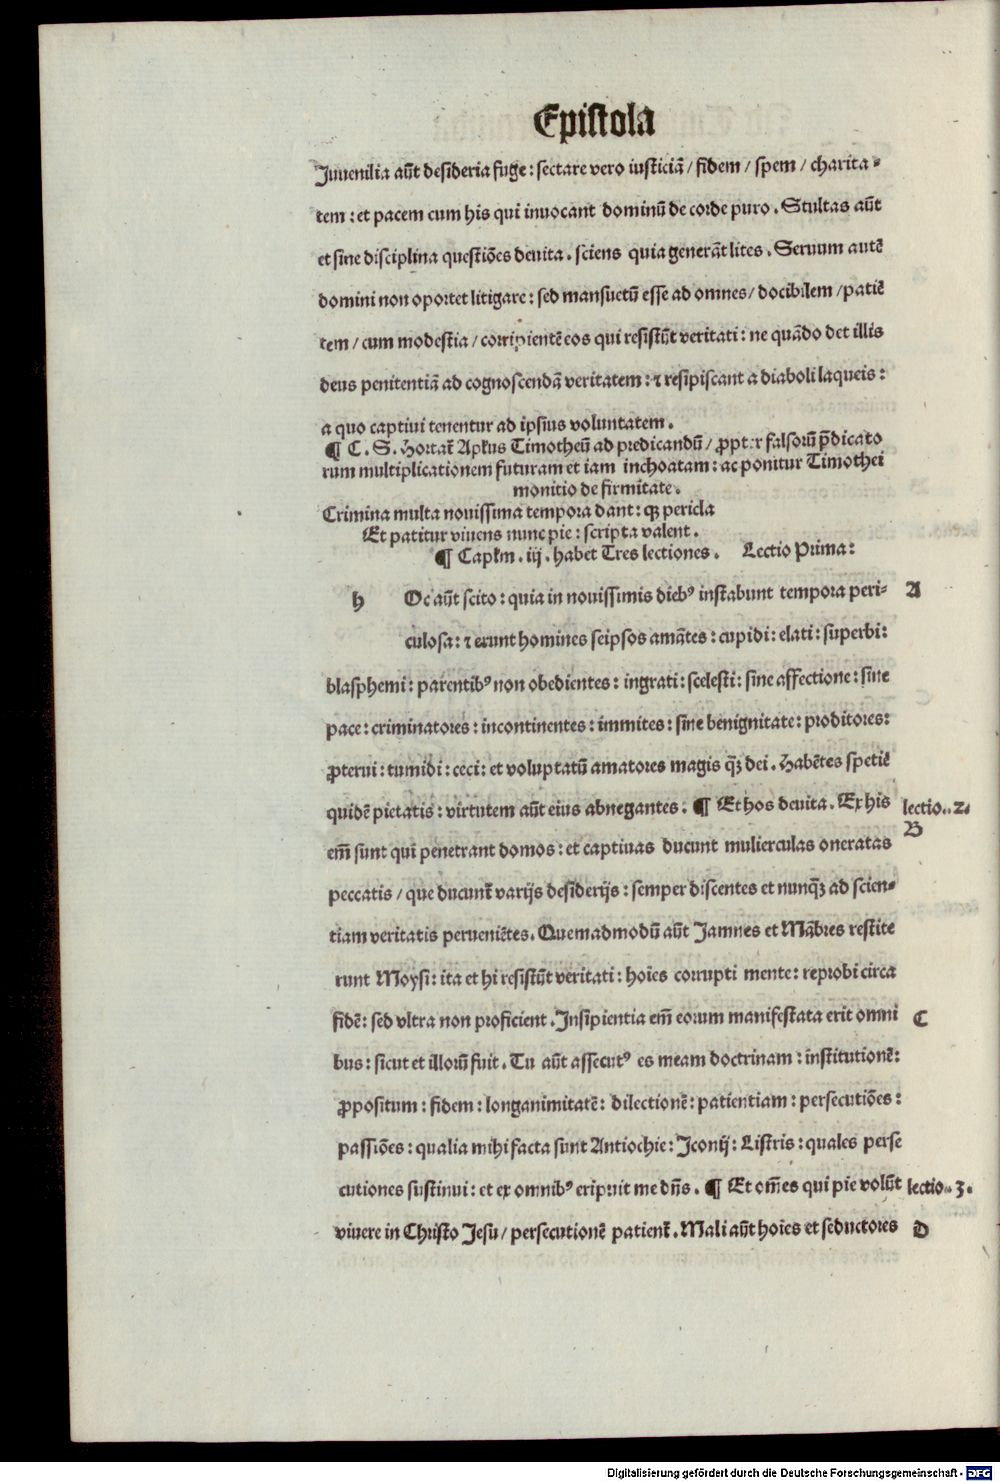 Epistola
Juuenilia aūt desideria fuge : sectare vero iusticiā / fidem / spem / charita-
tem : et pacem cum his qui inuocant dominū de corde puro . Stultas aūt
et sine disciplina questiōes deuita . sciens quia generāt lites . Seruum autē
domini non oportet litigare : sed mansuetū esse ad omnes / docibilem / patiē
tem / cum modestia / corripientē eos qui resistūt veritati : ne quādo det illis
deus penitentiā ad cognoscendā veritatem : ⁊ resipiscant a diaboli laqueis :
a quo captiui tenentur ad ipsius voluntatem .
¶ C . S . Hortat̄ Apl̄us Timotheū ad predicandū / ꝓpter falsorū p̄dicato
rum multiplicationem futuram et iam inchoatam : ac ponitur Timothei
monitio de firmitate .
Crimina multa nouissima tempora dant : qꝫ pericla
Et patitur viuens nunc pie : scripta valent .
¶ Capl̄m . iij . habet Tres lectiones . Lectio Prima :
h Oc aūt scito : quia in nouissimis diebꝰ instabunt tempora peri- A
culosa : ⁊ erunt homines seipsos amātes : cupidi : elati : superbi :
blasphemi : parentibꝰ non obedientes : ingrati : scelesti : sine affectione : sine
pace : criminatores : incontinentes : immites : sine benignitate : proditores :
ꝓterui : tumidi : ceci : et voluptatū amatores magis q̄ꝫ dei . Habētes spetiē
quidē pietatis : virtutem aūt eius abnegantes . ¶ Et hos deuita . Ex his lectio..2.
em̄ sunt qui penetrant domos : et captiuas ducunt mulierculas oneratas B
peccatis / que ducunt̄ varijs desiderijs : semper discentes et nunq̄ꝫ ad scien-
tiam veritatis perueniētes . Quemadmodū aūt Jamnes et Mābres restite
runt Moysi : ita et hi resistūt veritati : hoīes corrupti mente : reprobi circa
fidē : sed vltra non proficient . Insipientia em̄ eorum manifestata erit omni C
bus : sicut et illorū fuit . Tu aūt assecutꝰ es meam doctrinam : institutionē :
ꝓpositum : fidem : longanimitatē : dilectionē : patientiam : persecutiōes :
passiōes : qualia mihi facta sunt Antiochie : Iconij : Listris : quales perse
cutiones sustinui : et ex omnibꝰ eripuit me dn̄s . ¶ Et om̄es qui pie volūt lectio..3.
viuere in Christo Jesu / persecutionē patient̄ . Mali aūt hoīes et seductores D
Digitalisierung gefördert durch die Deutsche Forschungsgemeinschaft - DFG